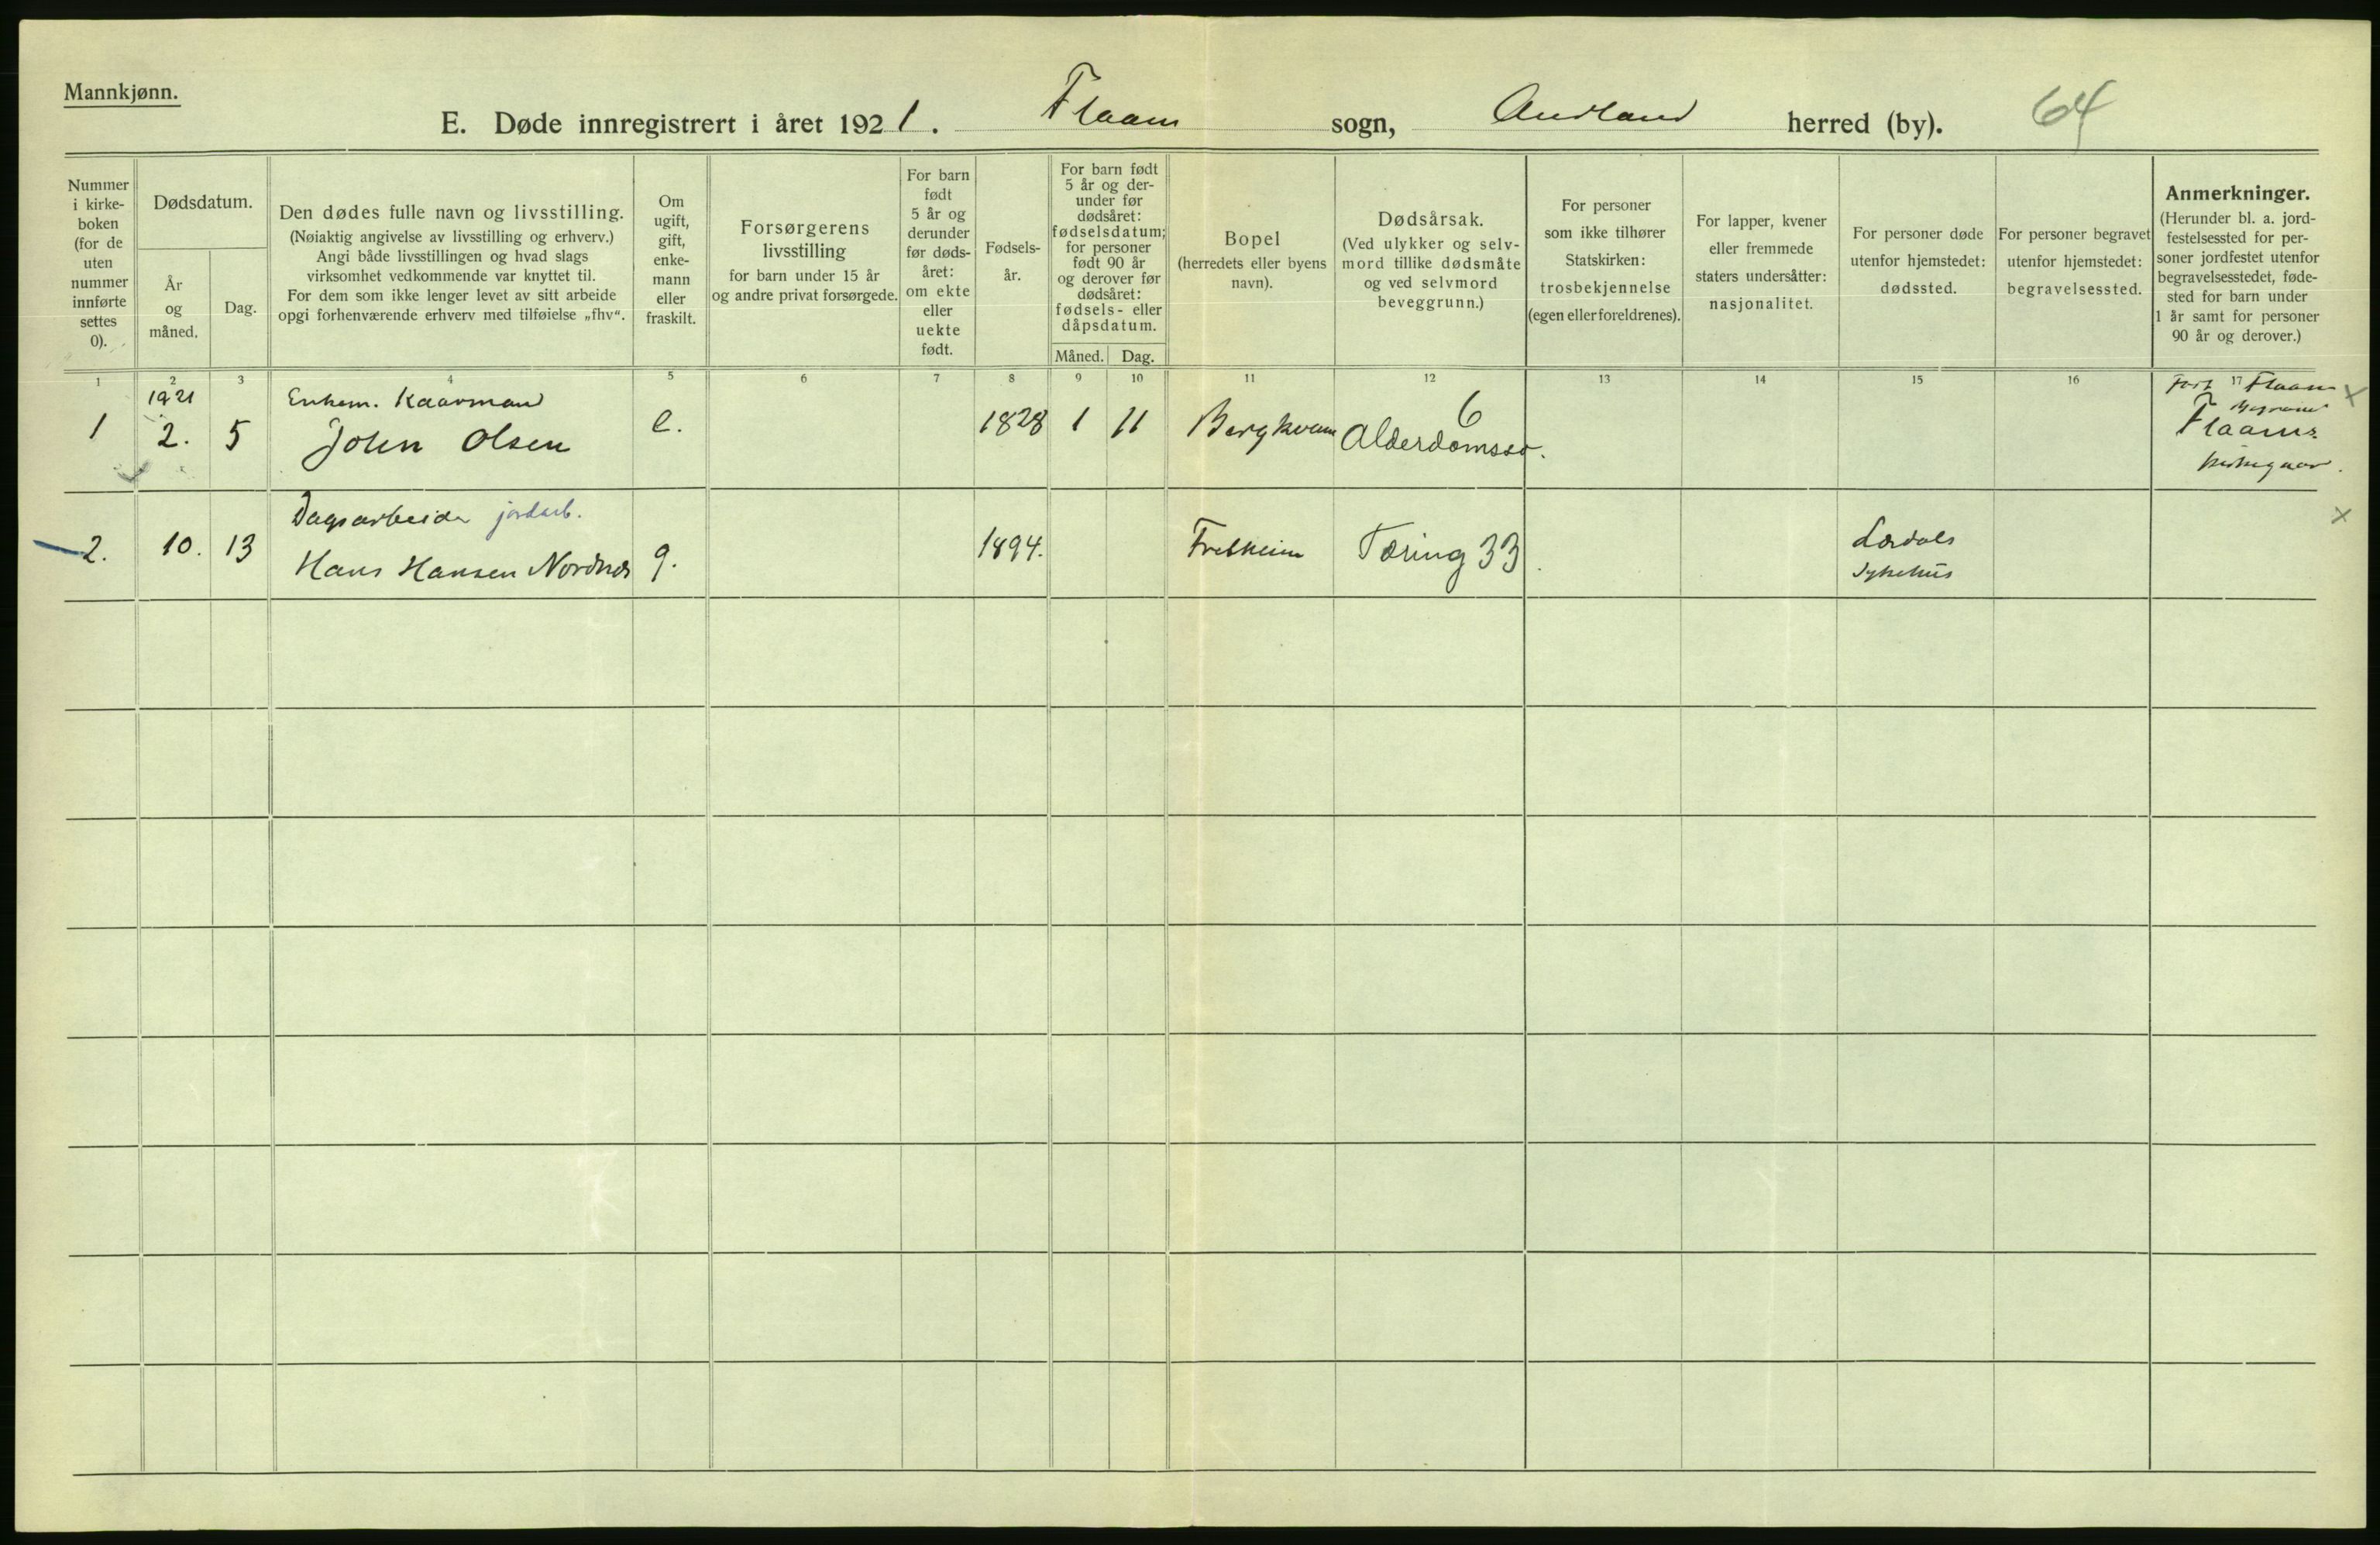 Mannkjønn.
E. Døde innregistrert i året 1921. Flaam sogn, Aurland herred (by). 64
Nummer
i kirke-
boken
(for de
uten
nummer
innførte
settes
0).
Dødsdatum.
År
og
måned.
Dag.
Den dødes fulle navn og livsstilling.
(Nøiaktig angivelse av livsstilling og erhverv.)
Angi både livsstillingen og hvad slags
virksomhet vedkommende var knyttet til.
For dem som ikke lenger levet av sitt arbeide
opgi forhenværende erhverv med tilføielse „fhv“.
Om
ugift,
gift,
enke-
mann
eller
fraskilt.
Forsørgerens
livsstilling
for barn under 15 år
og andre privat forsørgede.
For barn
født
5 år og
derunder
før døds-
året:
om ekte
eller
uekte
født.
Fødsels-
år.
For barn født
5 år og der-
under før
dødsåret:
fødselsdatum;
for personer
født 90 år
og derover før
dødsåret:
fødsels- eller
dåpsdatum.
Måned. Dag.
Bopel
(herredets eller byens
navn).
Dødsårsak.
(Ved ulykker og selv-
mord tillike dødsmåte
og ved selvmord
beveggrunn.)
For personer
som ikke tilhører
Statskirken:
trosbekjennelse
(egen eller foreldrenes).
For lapper, kvener
eller fremmede
staters undersåtter:
nasjonalitet.
For personer døde
utenfor hjemstedet:
dødssted.
For personer begravet
utenfor hjemstedet:
begravelsessted.
Anmerkninger.
(Herunder bl. a. jord-
festelsessted for per-
soner jordfestet utenfor
begravelsesstedet, føde-
sted for barn under
1 år samt for personer
90 år og derover.)
1 2 3 4 5 6 7 8 9 10 11 12 13 14 15 16 17
1921 Enkem. Kaarmand 6 Flaam x
1 2. 5 John Olsen e. 1828 1 11 Bergkvam Alderdomssv. Flaams
Dagsarbeider jordarb. x
2. 10. 13 Hans Hansen Nordnes g. 1894. Fretheim Tæring 33. Lærdals
sykehus